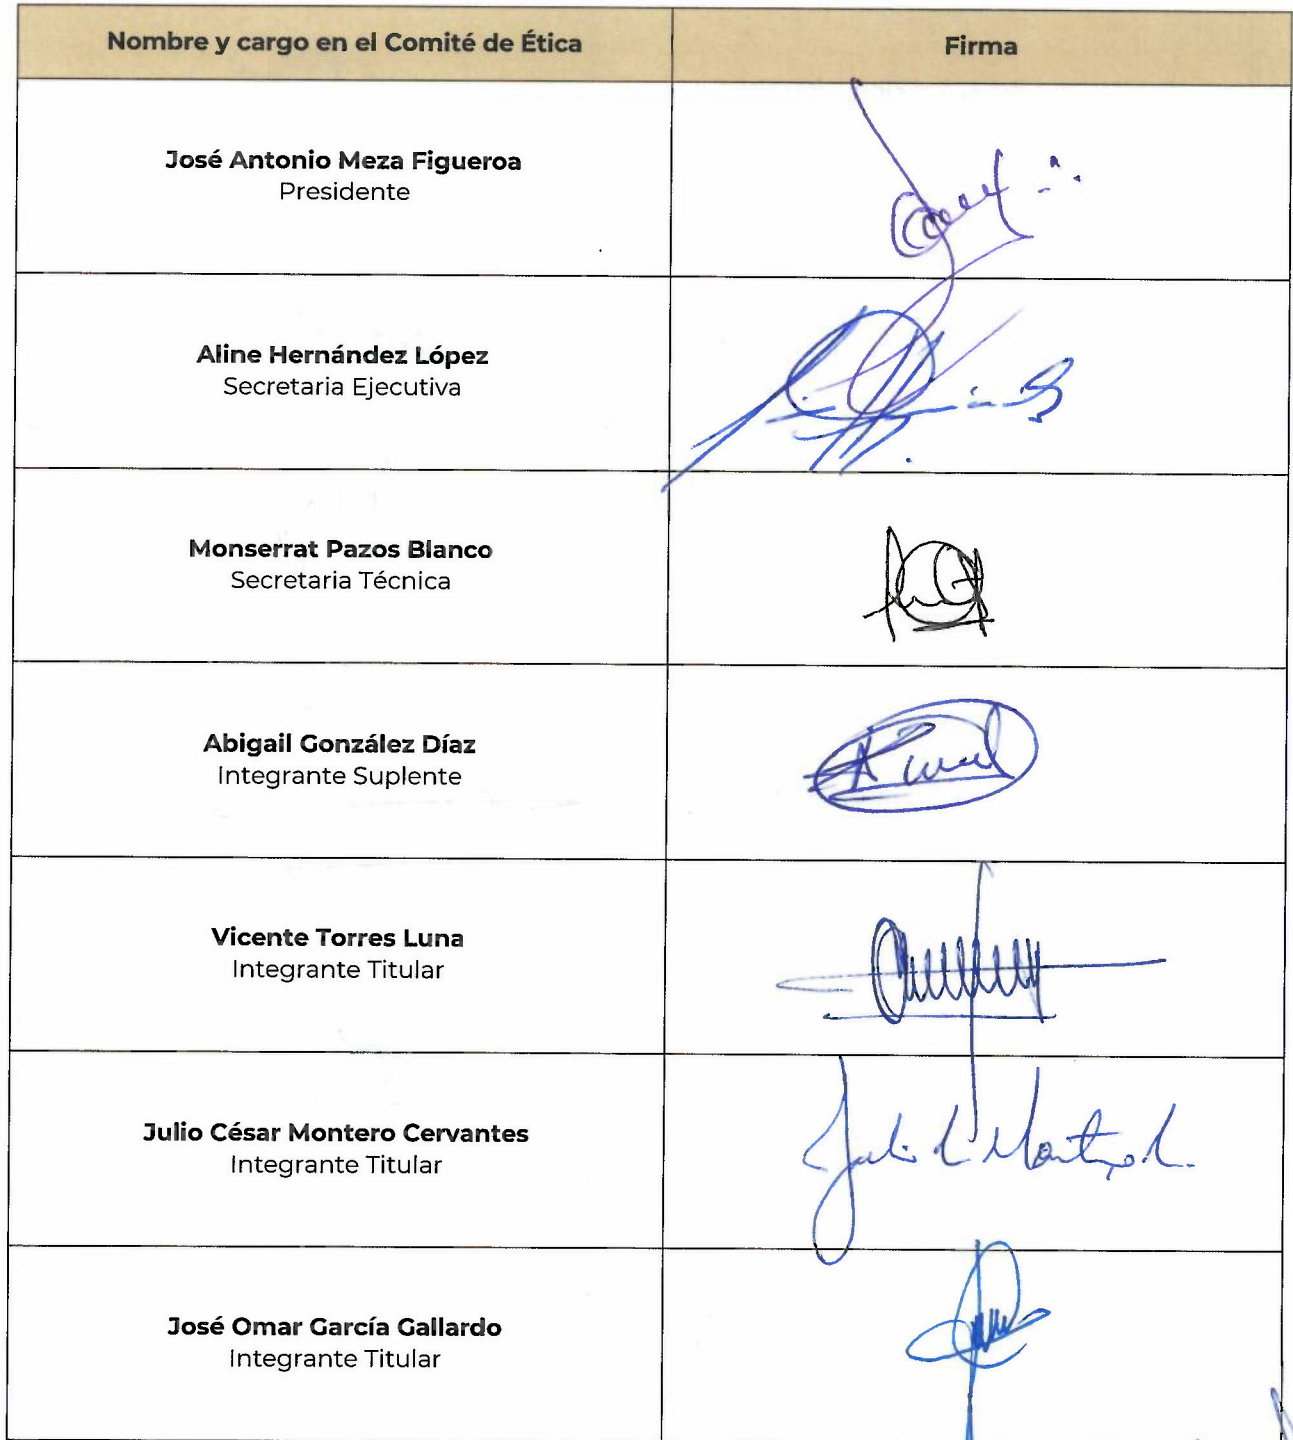 Nombre y cargo en el Comité de Ética
Firma
José Antonio Meza Figueroa
Presidente
Aline Hernández López
Secretaria Ejecutiva
Monserrat Pazos Blanco
Secretaria Técnica
Abigail González Díaz
Integrante Suplente
Vicente Torres Luna
Integrante Titular
Julio César Montero Cervantes
Integrante Titular
José Omar García Gallardo
Integrante Titular